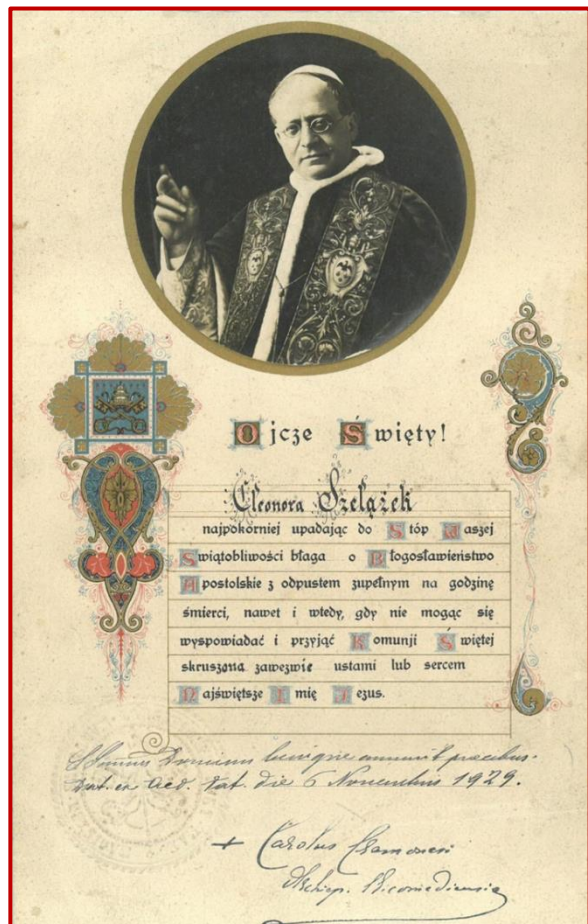 Ojcze Święty!
Eleonora Szelążek
najpokorniej upadając do Stóp Waszej
Świątobliwości błaga o Błogosławieństwo
Apostolskie z odpustem zupełnym na godzinę
śmierci, nawet i wtedy, gdy nie mogąc się
wyspowiadać i przyjąć Komunji Świętej
skruszona zawezwie ustami lub sercem
Najświętsze Imię Jezus.
Dominus benigne annuit precibus.
Vat. die 6 Novembris 1929.
+ Carolus
Nicomediensis